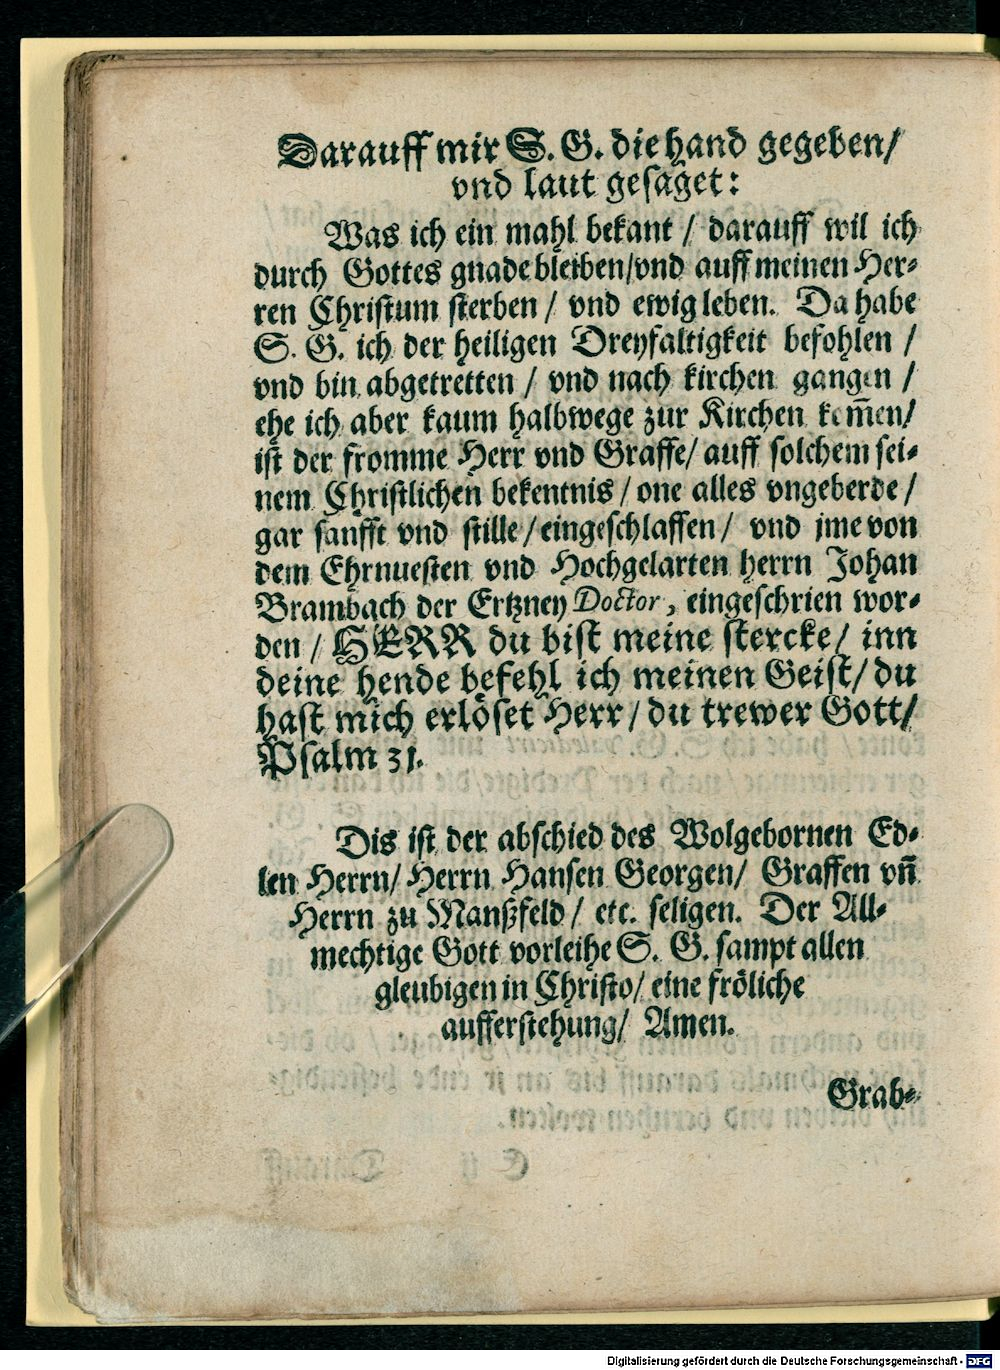 Darauff mir S. G. die hand gegeben/
vnd laut gesaget:
Was ich ein mahl bekant / darauff wil ich
durch Gottes gnade bleiben/vnd auff meinen Her-
ren Christum sterben / vnd ewig leben. Da habe
S. G. ich der heiligen Dreyfaltigkeit befohlen /
vnd bin abgetretten / vnd nach kirchen gangen /
ehe ich aber kaum halbwege zur Kirchen kom̃en/
ist der fromme Herr vnd Graffe/ auff solchem sei-
nem Christlichen bekentnis / one alles vngeberde /
gar sanfft vnd stille / eingeschlaffen / vnd jme von
dem Ehrnuesten vnd Hochgelarten herrn Johan
Brambach der Ertzney Doctor, eingeschrien wor-
den / HERR du bist meine stercke/ inn
deine hende befehl ich meinen Geist/ du
hast mich erlöset Herr/ du trewer Gott/
Psalm 31.
Dis ist der abschied des Wolgebornen Ed-
len Herrn/ Herrn Hansen Georgen/ Graffen vñ
Herrn zu Manßfeld/ etc. seligen. Der All-
mechtige Gott vorleihe S. G. sampt allen
gleubigen in Christo/ eine fröliche
aufferstehung/ Amen.
Grab-
Digitalisierung gefördert durch die Deutsche Forschungsgemeinschaft - DFG